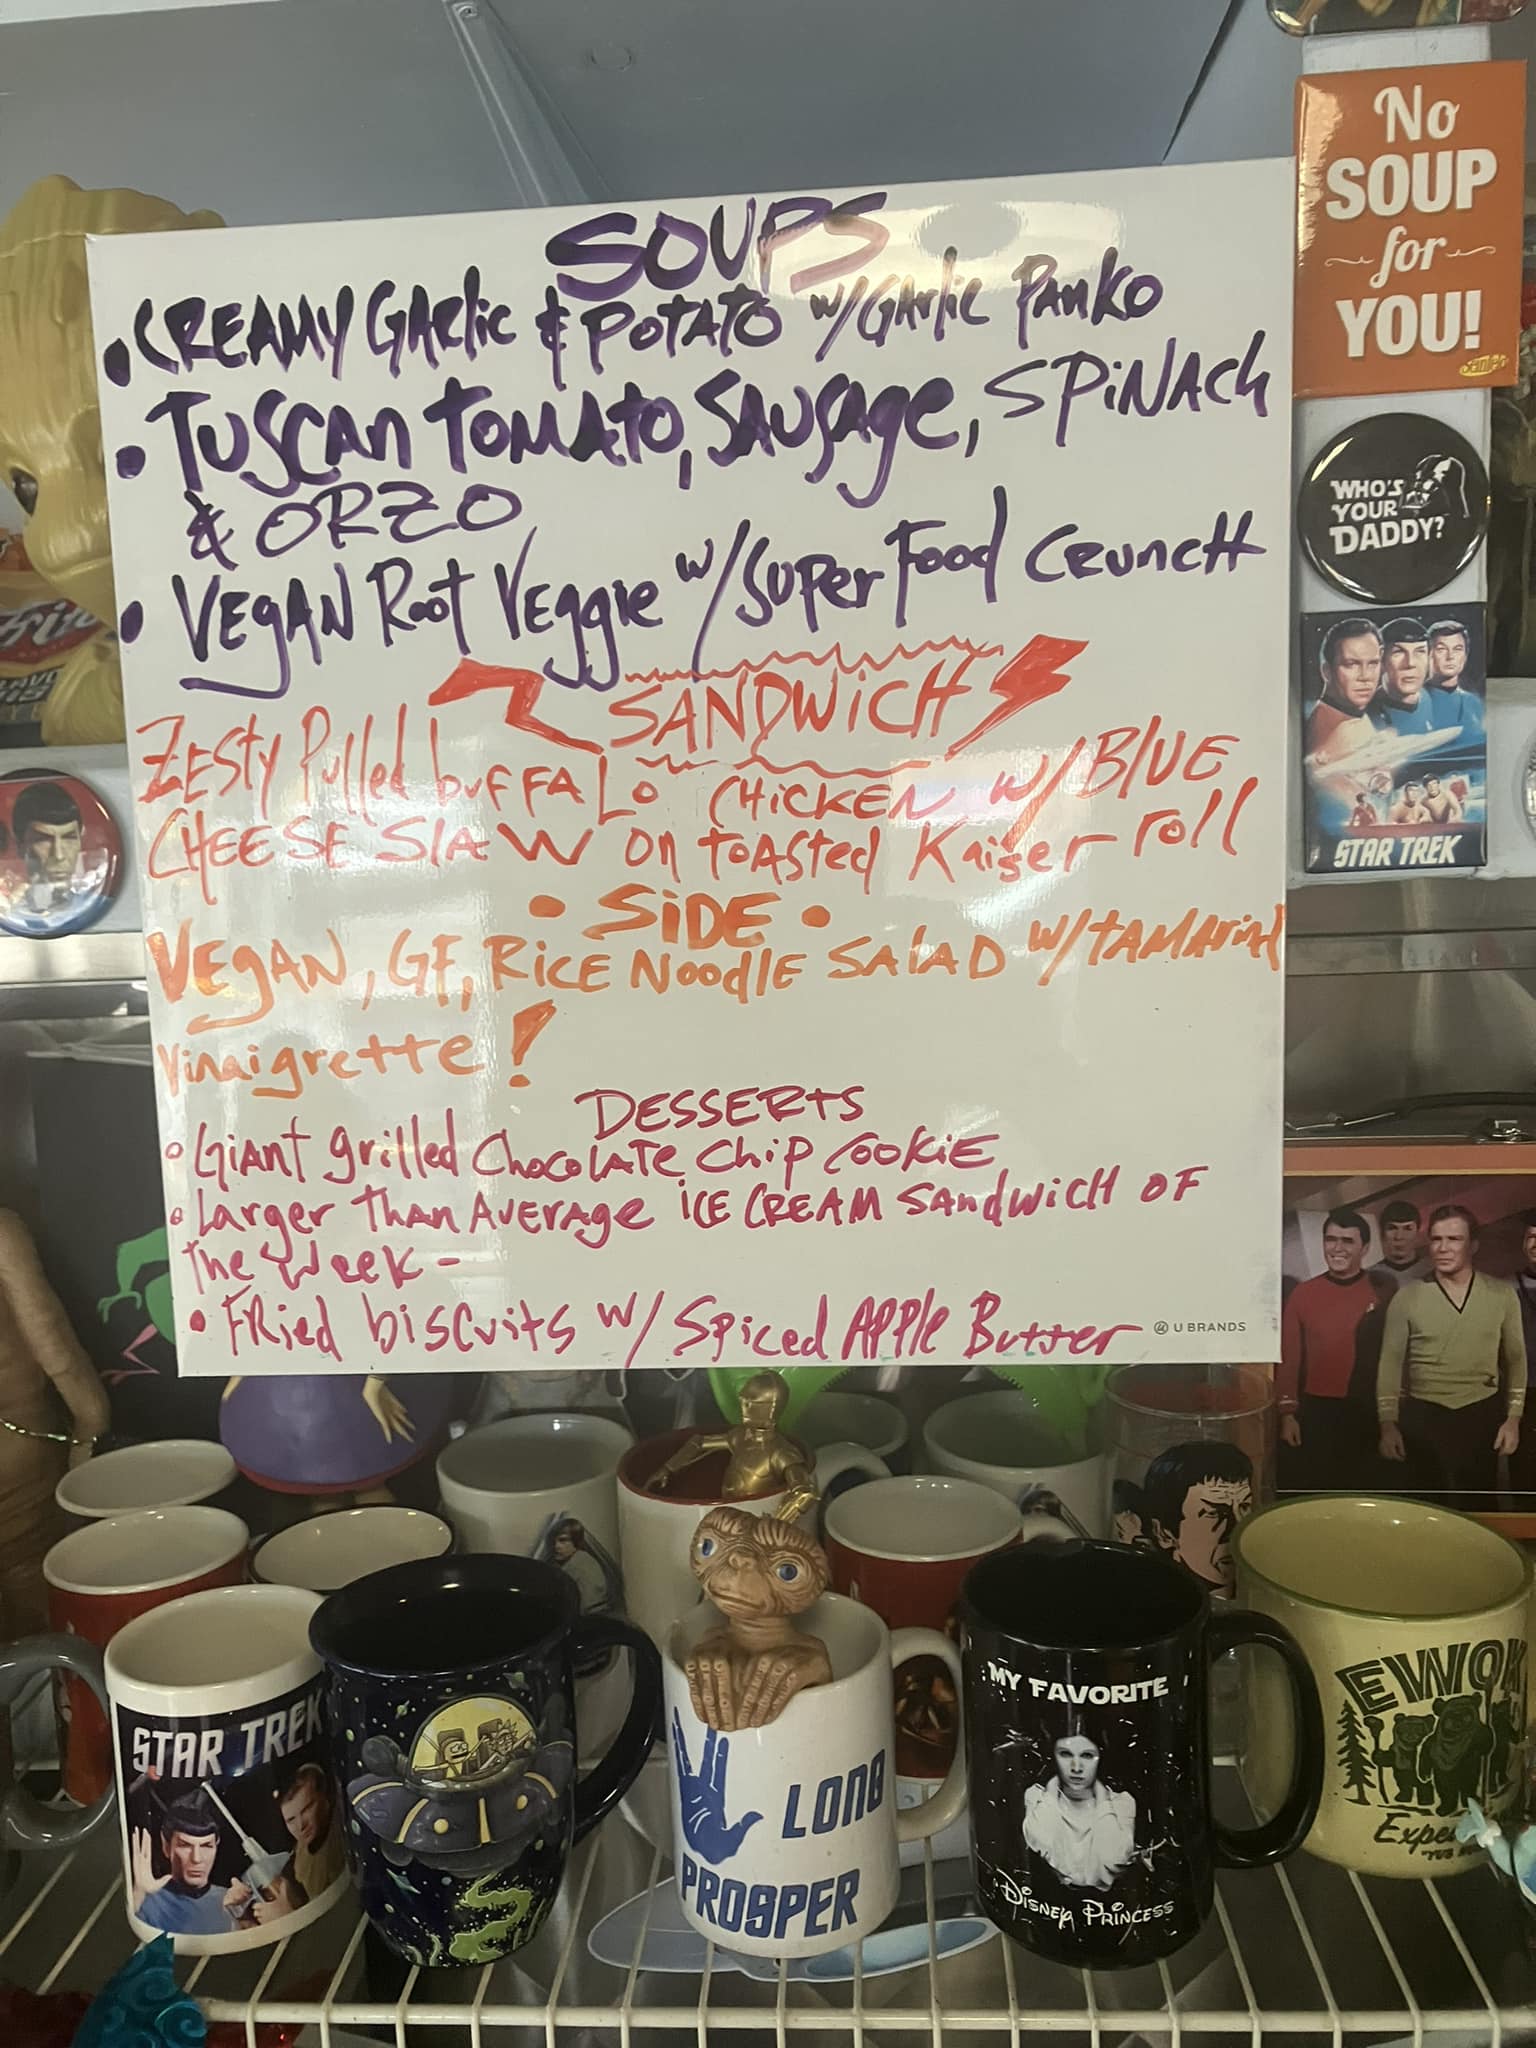 SOUPS
• CREAMY GARlic & POTATO w/GARlic PANKO
• TUSCAN TOMATO, SAUSAge, SPiNACH
& ORZO
• VEGAN Root Veggie w/Super Food CRUNCH
SANDWiCH
ZESty Pulled buFFALO CHiCKEN w/BlUE
CHEESE SlAW ON toAsted Kaiser roll
• SiDE •
VEgAN, GF, RiCE NoodlE SAlAD w/tAMArind
Vinaigrette!
DESSERtS
• GiANT grilled CHocolATE CHip COOKiE
• LArger THan AvERAge iCE CREAM SandwicH OF
The Week -
• FRied biscuits w/ Spiced APPle Butter
U BRANDS
No
SOUP
for
YOU!
WHO'S
YOUR
DADDY?
STAR TREK
STAR TREK
LONG
PROSPER
MY FAVORITE
Disney Princess
EWOK